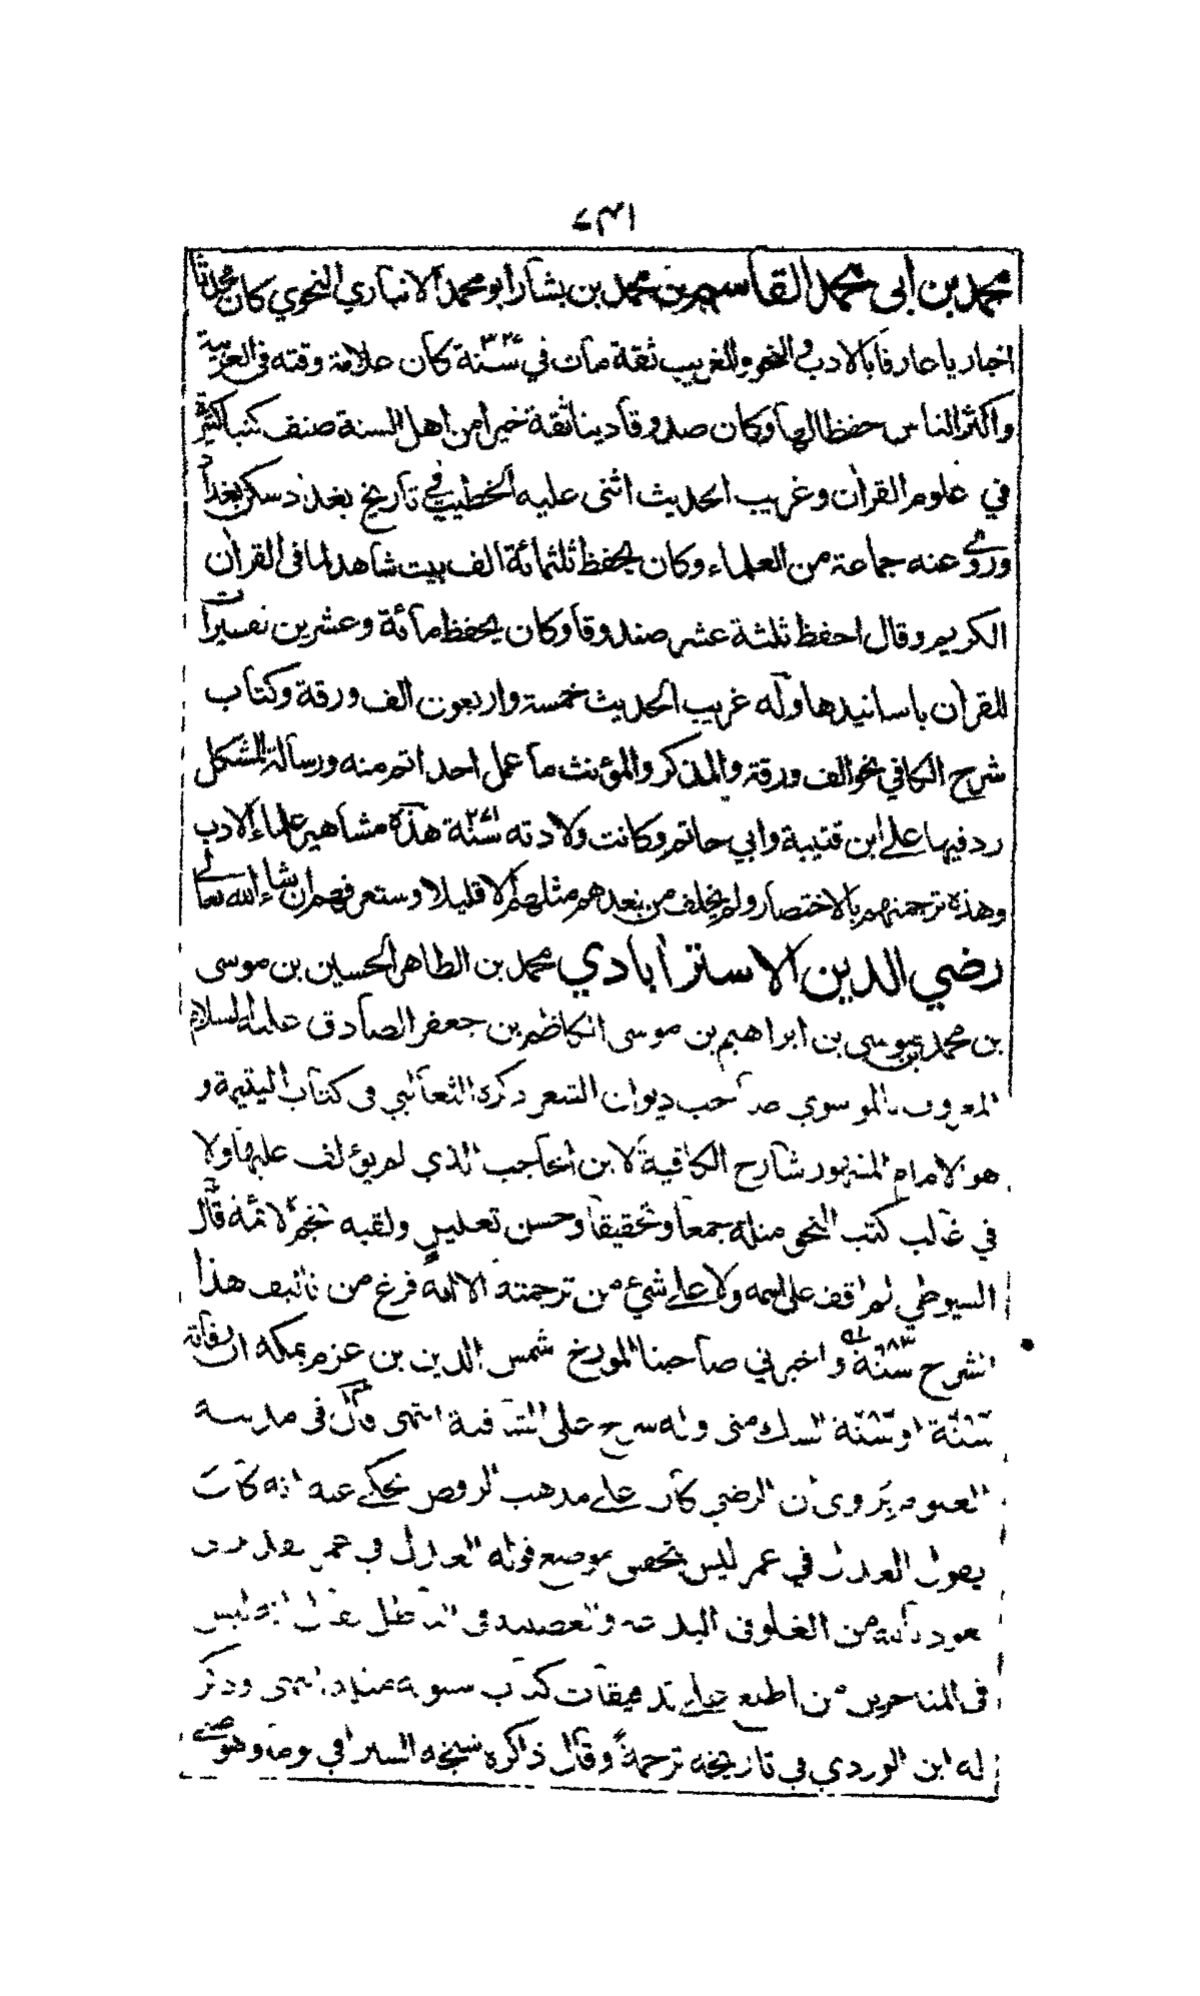 محمد بن ابى محمد القاسم بن محمد بن بشار ابو محمد الانباري النحوي كان محدثا
اخباريا عارفا بالادب والنحو والغريب ثقة مات في سنة كان علامة وقته فى العربية
واكثر الناس حفظا لها وكان صدوقا دينا ثقة خيرا من اهل السنة صنف كتبا كثيرة
في علوم القرآن وغريب الحديث اثنى عليه الخطيب في تاريخ بغداد سكن بغداد
وروى عنه جماعة من العلماء وكان يحفظ ثلثمائة الف بيت شاهد لما فى القرآن
الكريم وقال احفظ ثلثة عشر صندوقا وكان يحفظ مائة وعشرين تفسيرات
للقرآن باسانيدها وله غريب الحديث خمسة واربعون الف ورقة وكتاب
شرح الكافي نحو الف ورقة والمذكر والمؤنث ما عمل احد اتم منه ورسالة المشكل
رد فيها على ابن قتيبة وابي حاتم وكانت ولادته سنة ٢٧١ هذه مشاهير علماء الادب
وهذه ترجمتهم بالاختصار ولم يخلف من بعدهم مثلهم الا قليلا وستعرفهم ان شاء الله تعالى
رضي الدين الاسترابادي محمد بن الطاهر الحسين بن موسى
بن محمد بن موسى بن ابراهيم بن موسى الكاظم بن جعفر الصادق عليه السلام
المعروف بالموسوي صاحب ديوان الشعر ذكره الثعالبي فى كتاب اليتيمة و
هو الامام المشهور شارح الكافية لابن الحاجب الذي لم يؤلف عليها ولا
في غالب كتب النحو مثله جمعا وتحقيقا وحسن تعليل ولقبه نجم الائمة قال
السيوطي لم اقف على اسمه ولا على شيء من ترجمته الا انه فرغ من تأليف هذا
الشرح سنة ٦٨٣ واخبرني صاحبنا المورخ شمس الدين بن عزم بمكة ان وفاته
سنة او سنة الشك منى وله شرح على الشافية انتهى قال فى مدينة
العلوم يروى ان الرضي كان على مذهب الروفض يحكى عنه انه كان
يقول العدل في عمر ليس بحص موضع قوله العدل في عمر
من الغلو فى البدعة و العصبية فى الباطل
فى المتاخرين من اطلع على تدقيقات كتاب سيبويه انتهى وذكر
له ابن الوردي في تاريخه ترجمة وقال ذاكره شيخه السيرافي يوما وهو صبي